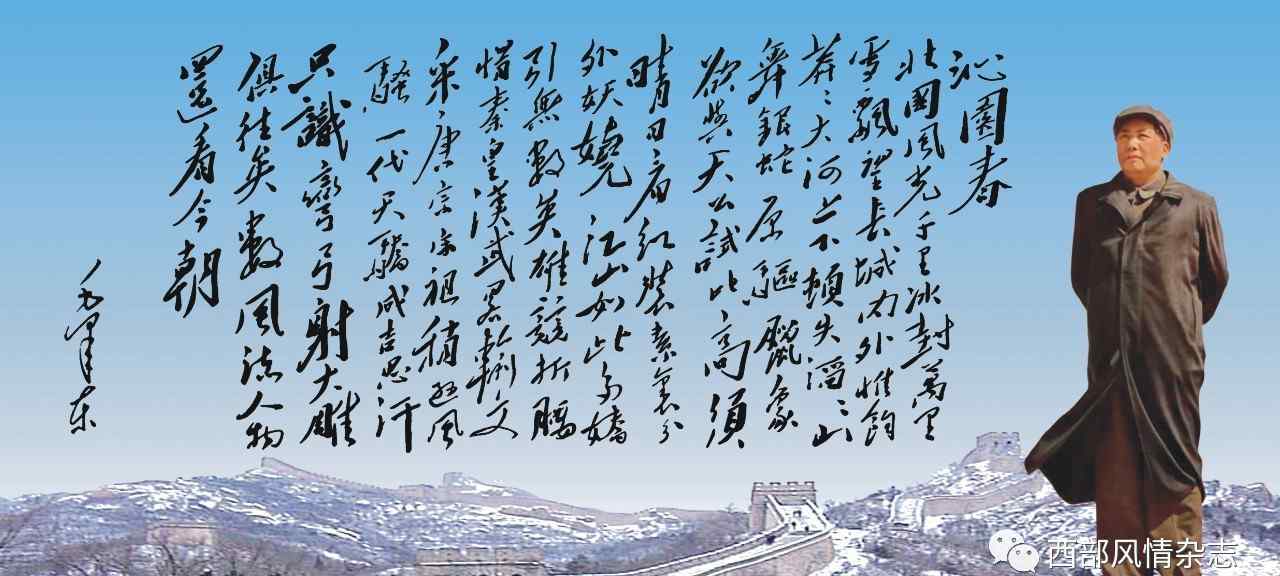 沁園春
北國風光千里冰封萬里
雪飄望長城內外惟餘
莽莽大河上下頓失滔滔山
舞銀蛇原驅臘象
欲與天公試比高須
晴日看紅裝素裹分
外妖嬈江山如此多嬌
引無數英雄競折腰
惜秦皇漢武略輸文
采唐宗宋祖稍遜風
騷一代天驕成吉思汗
只識彎弓射大雕
俱往矣數風流人物
還看今朝
毛澤東
西部风情杂志